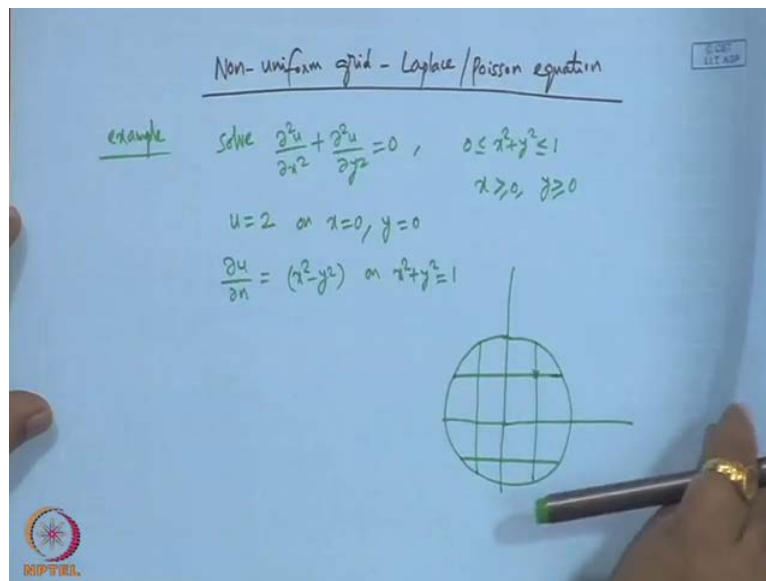 Non-uniform grid - Laplace/Poisson equation
© CET
I.I.T. KGP
example solve ∂²u/∂x² + ∂²u/∂y² = 0 , 0 ≤ x²+y² ≤ 1
x ≥ 0, y ≥ 0
u = 2 on x=0, y=0
∂u/∂n = (x²-y²) on x²+y²=1
NPTEL